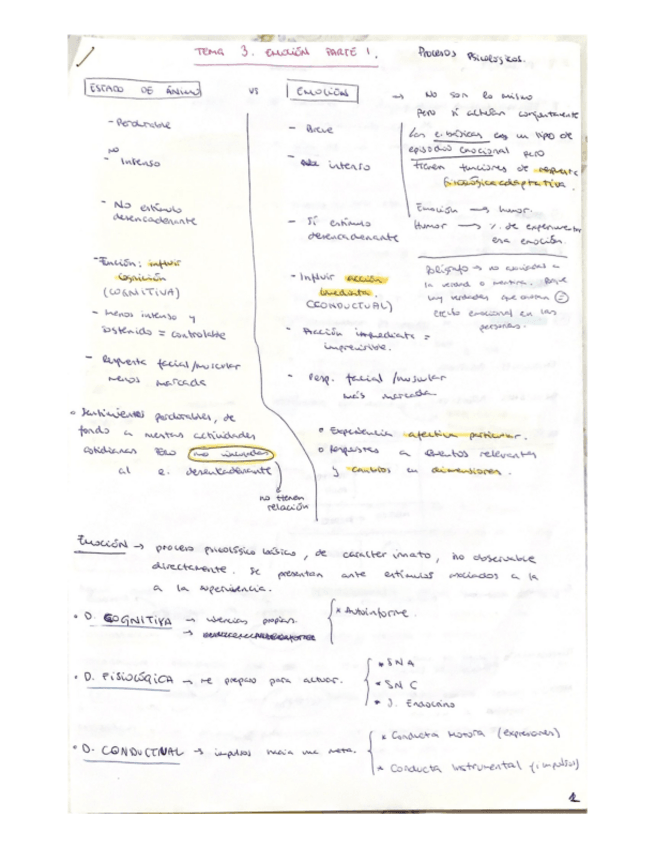 TEMA 3. EMOCIÓN PARTE 1.
Procesos Psicológicos.
ESTADO DE ÁNIMO
vs
EMOCIÓN
- Perdurable
no
- Intenso
- No estímulo
desencadenante
- Función: influir
cognición
(COGNITIVA)
- Menos intenso y
sostenido = controlable
- Respuesta facial/muscular
menos marcada
o Sentimientos perdurables, de
fondo a nuestras actividades
cotidianas no vinculadas
al e. desencadenante
no tienen
relación
- Breve
- intenso
- Sí estímulo
desencadenante
- Influir acción
inmediata.
(CONDUCTUAL)
- Acción inmediata =
- Resp. facial/muscular
más marcada.
o Experiencia afectiva particular.
o Respuestas a eventos relevantes
y cambios en dimensiones.
→ No son lo mismo
Pero sí actúan conjuntamente
Las e. básicas un tipo de
episodio emocional pero
tienen funciones de respuesta
fisiológica adaptativa.
Emoción → humor.
Humor → % de experimentar
esa emoción.
polígrafo → no
la verdad o mentira, porque
hay verdades que =
efecto emocional en las
personas.
Emoción → proceso psicológico básico, de carácter innato, no observable
directamente. Se presentan ante estímulos asociados a la
a la supervivencia.
• D. COGNITIVA → vivencias propias.
→
* Autoinforme.
• D. FISIOLÓGICA → me preparo para actuar.
* SNA
* SNC
* S. Endocrino
• D. CONDUCTUAL → impulsos hacia una meta.
* Conducta Motora (expresiones)
* Conducta Instrumental (impulsos)
1